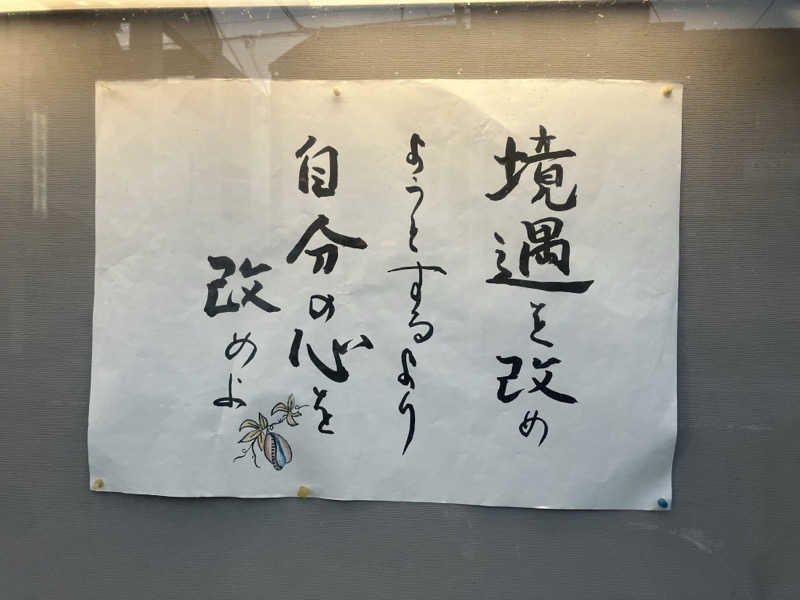 境遇を改め
ようとするより
自分の心を
改めよ